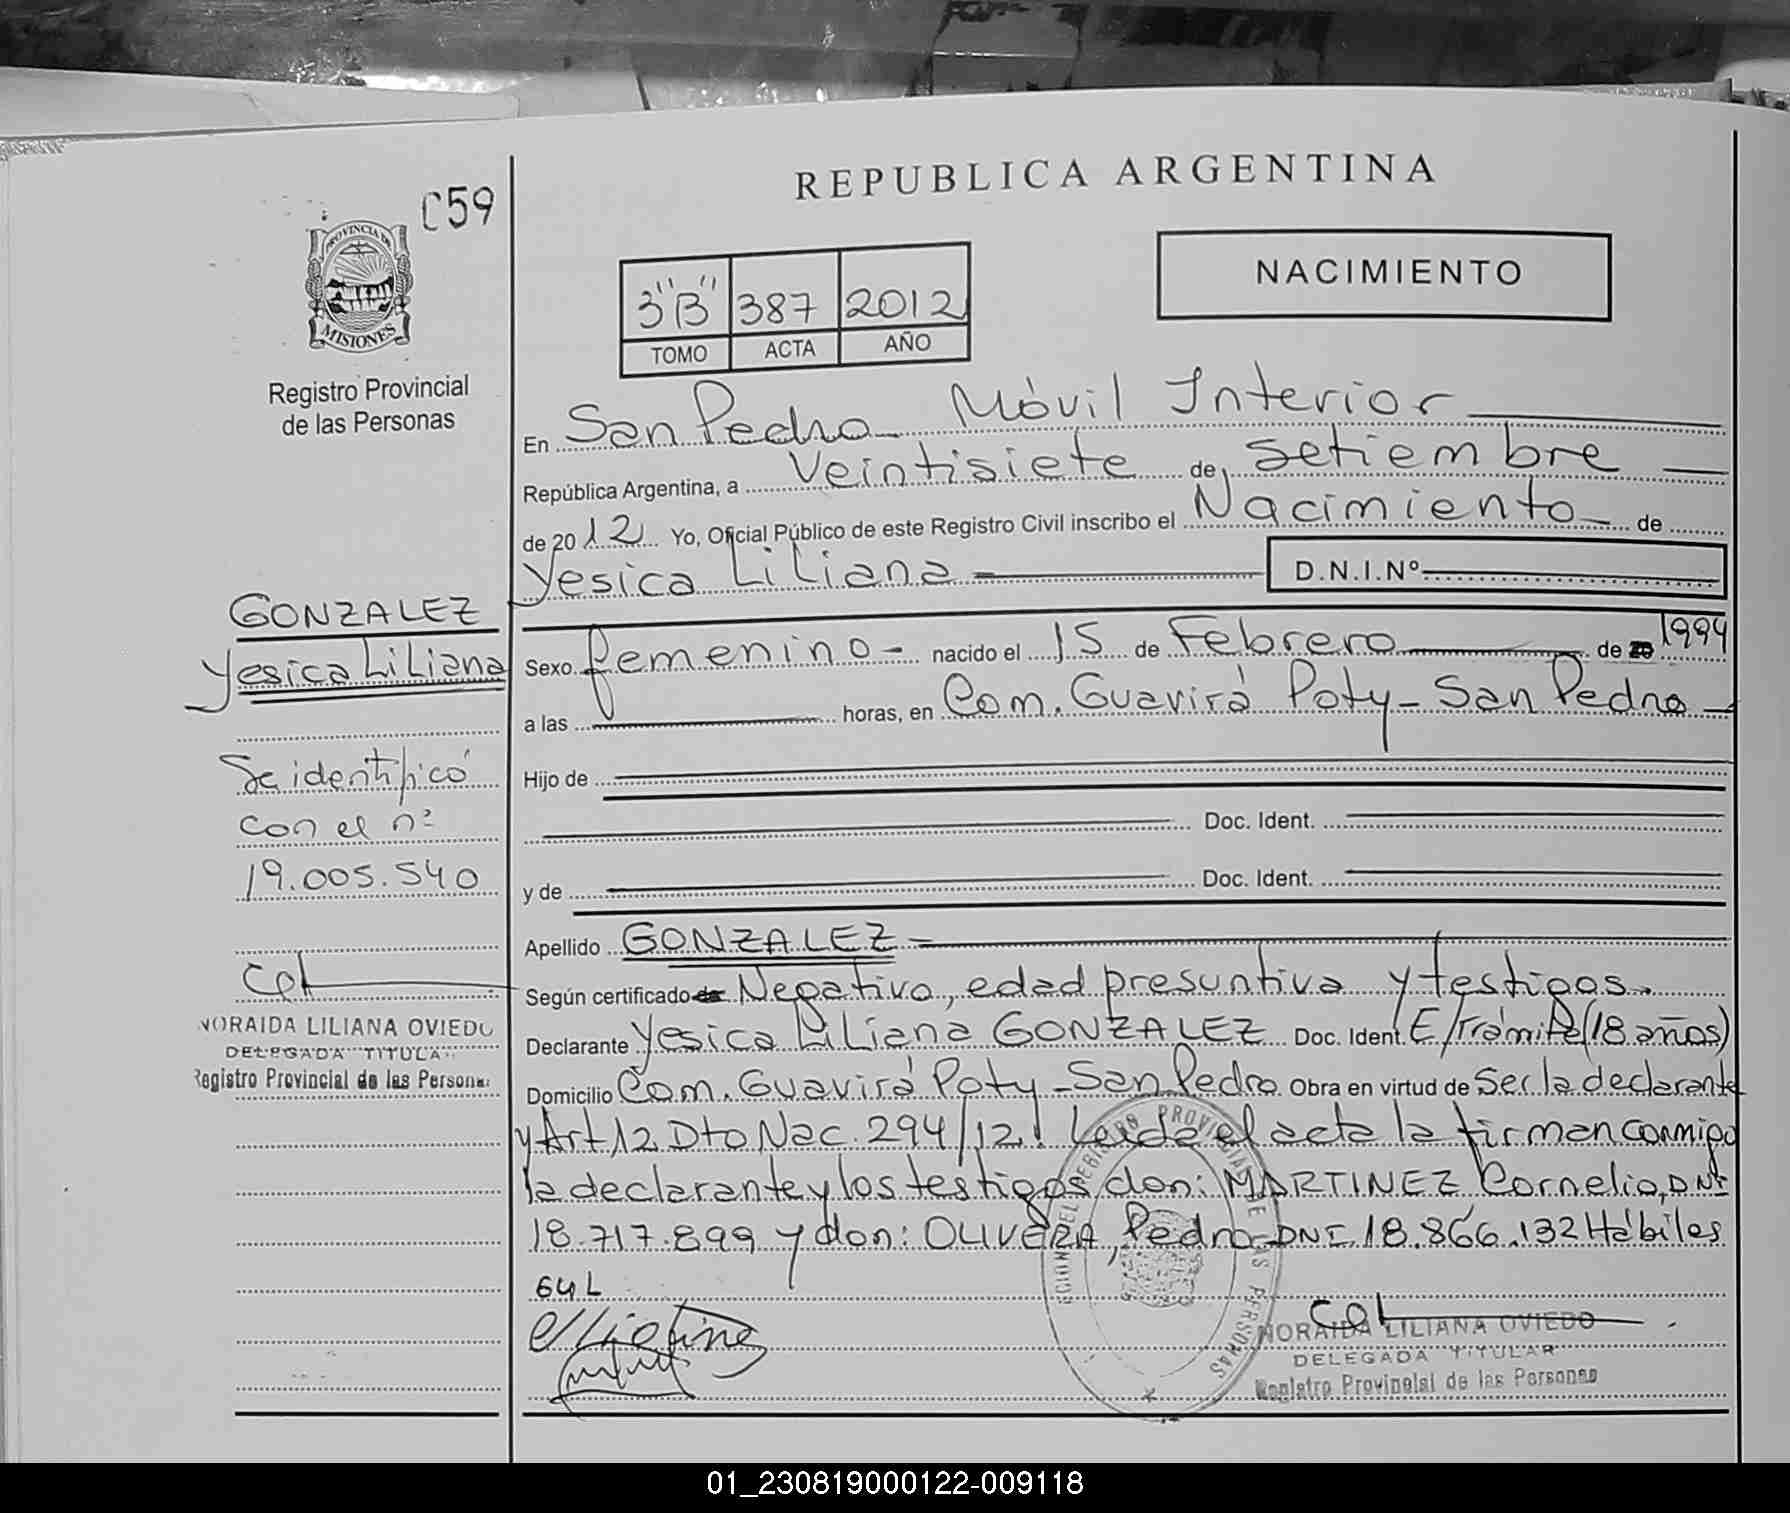 REPUBLICA ARGENTINA
C59
PROVINCIA DE
MISIONES
Registro Provincial
de las Personas
3"B" 387 2012
TOMO ACTA AÑO
NACIMIENTO
En San Pedro Móvil Interior
República Argentina, a Veintisiete de setiembre
de 2012 Yo, Oficial Público de este Registro Civil inscribo el Nacimiento de
Yesica Liliana D.N.I.Nº
Sexo femenino - nacido el 15 de Febrero de 20 1994
a las horas, en Com. Guavirá Poty - San Pedro
Hijo de
Doc. Ident.
y de Doc. Ident.
Apellido GONZALEZ
Según certificado de Negativo, edad presuntiva y testigos.
Declarante Yesica Liliana GONZALEZ Doc. Ident. E/Trámite (18 años)
Domicilio Com. Guavirá Poty - San Pedro Obra en virtud de Ser la declarante
y Art 12 Dto Nac. 294/12. Leida el acta la firman conmigo
la declarante y los testigos, don: MARTINEZ Cornelio, DNI
18.717.899 y don: OLIVERA, Pedro DNI 18.866.132 Hábiles
GONZALEZ
Yesica Liliana
Se identificó
con el nº
19.005.540
NORAIDA LILIANA OVIEDO
DELEGADA TITULAR
Registro Provincial de las Personas
NORAIDA LILIANA OVIEDO
DELEGADA TITULAR
Registro Provincial de las Personas
01_230819000122-009118